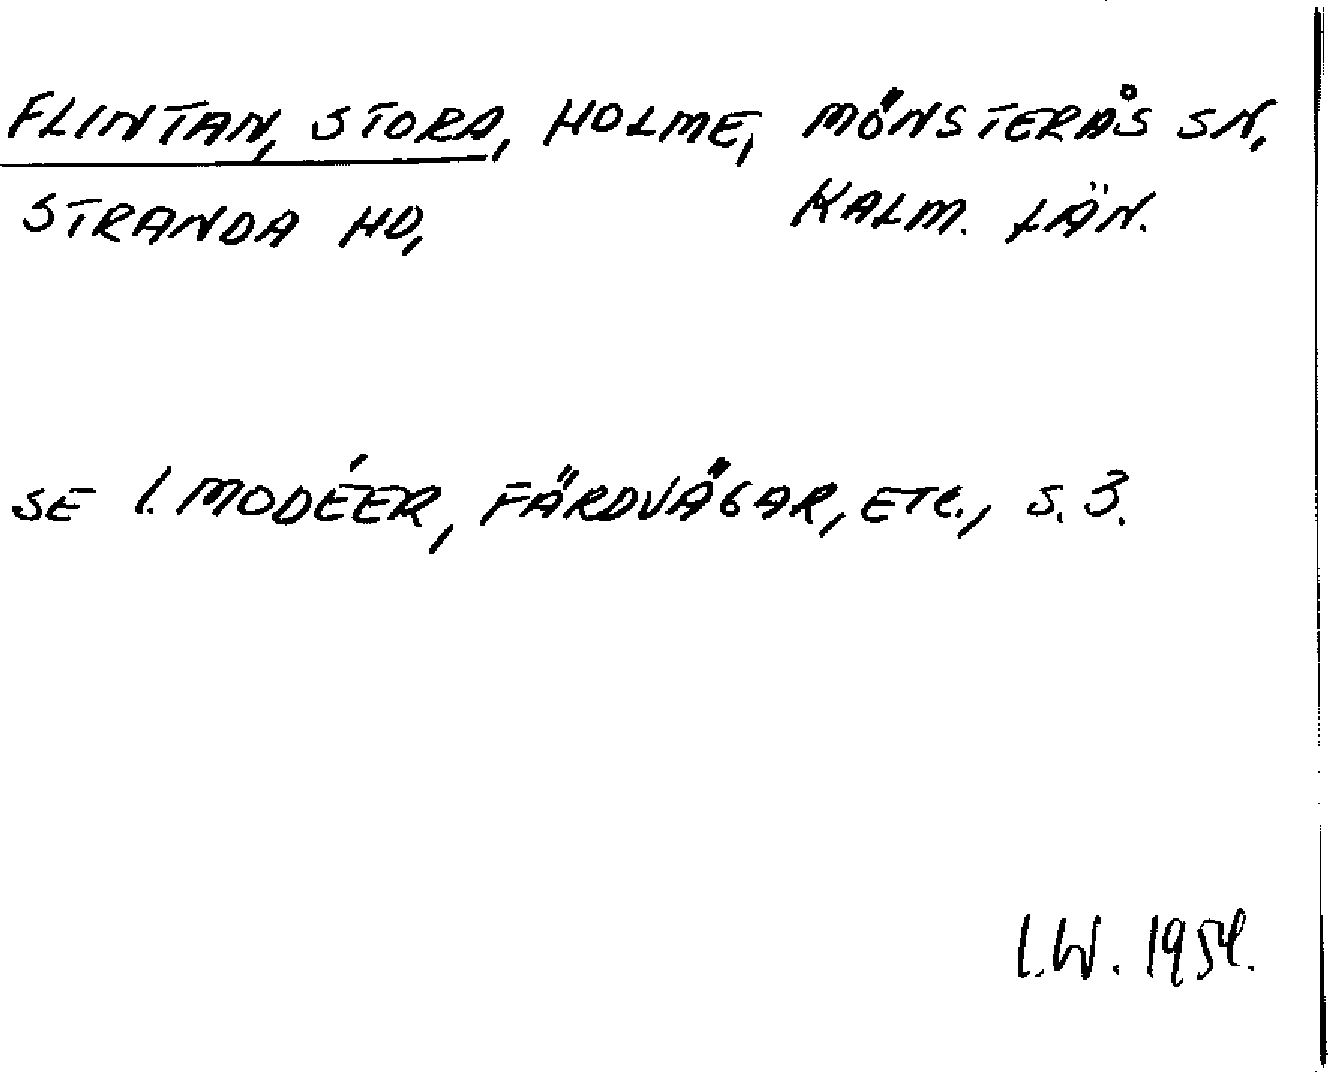 FLINTAN, STORA, HOLME, MÖNSTERÅS SN,
STRANDA HD, KALM. LÄN.
SE I. MODÉER, FÄRDVÄGAR, ETC., S. 3.
I.W. 1954.